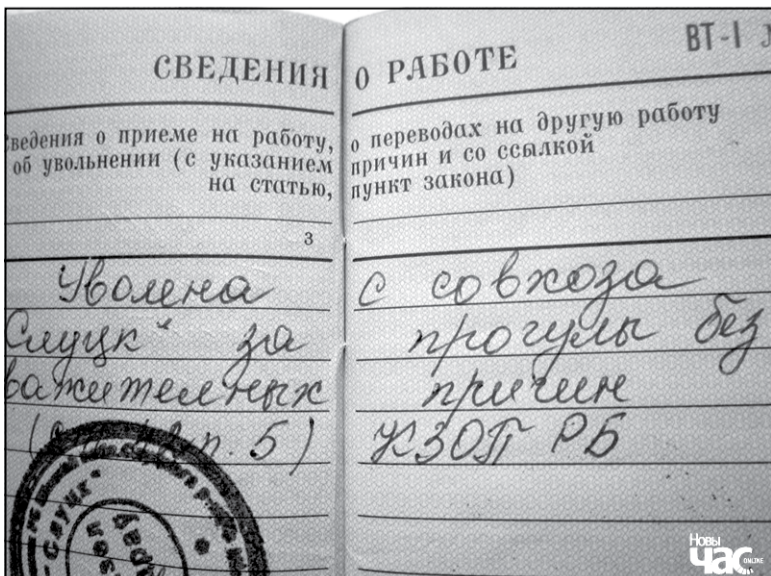 ВТ-I
СВЕДЕНИЯ О РАБОТЕ
Сведения о приеме на работу, о переводах на другую работу
об увольнении (с указанием причин и со ссылкой
на статью, пункт закона)
3
Уволена с совхоза
Слуцк" за прогулы без
важительных причин
п. 5) КЗОТ РБ
"Слуцк"
Новы
Час
ONLINE